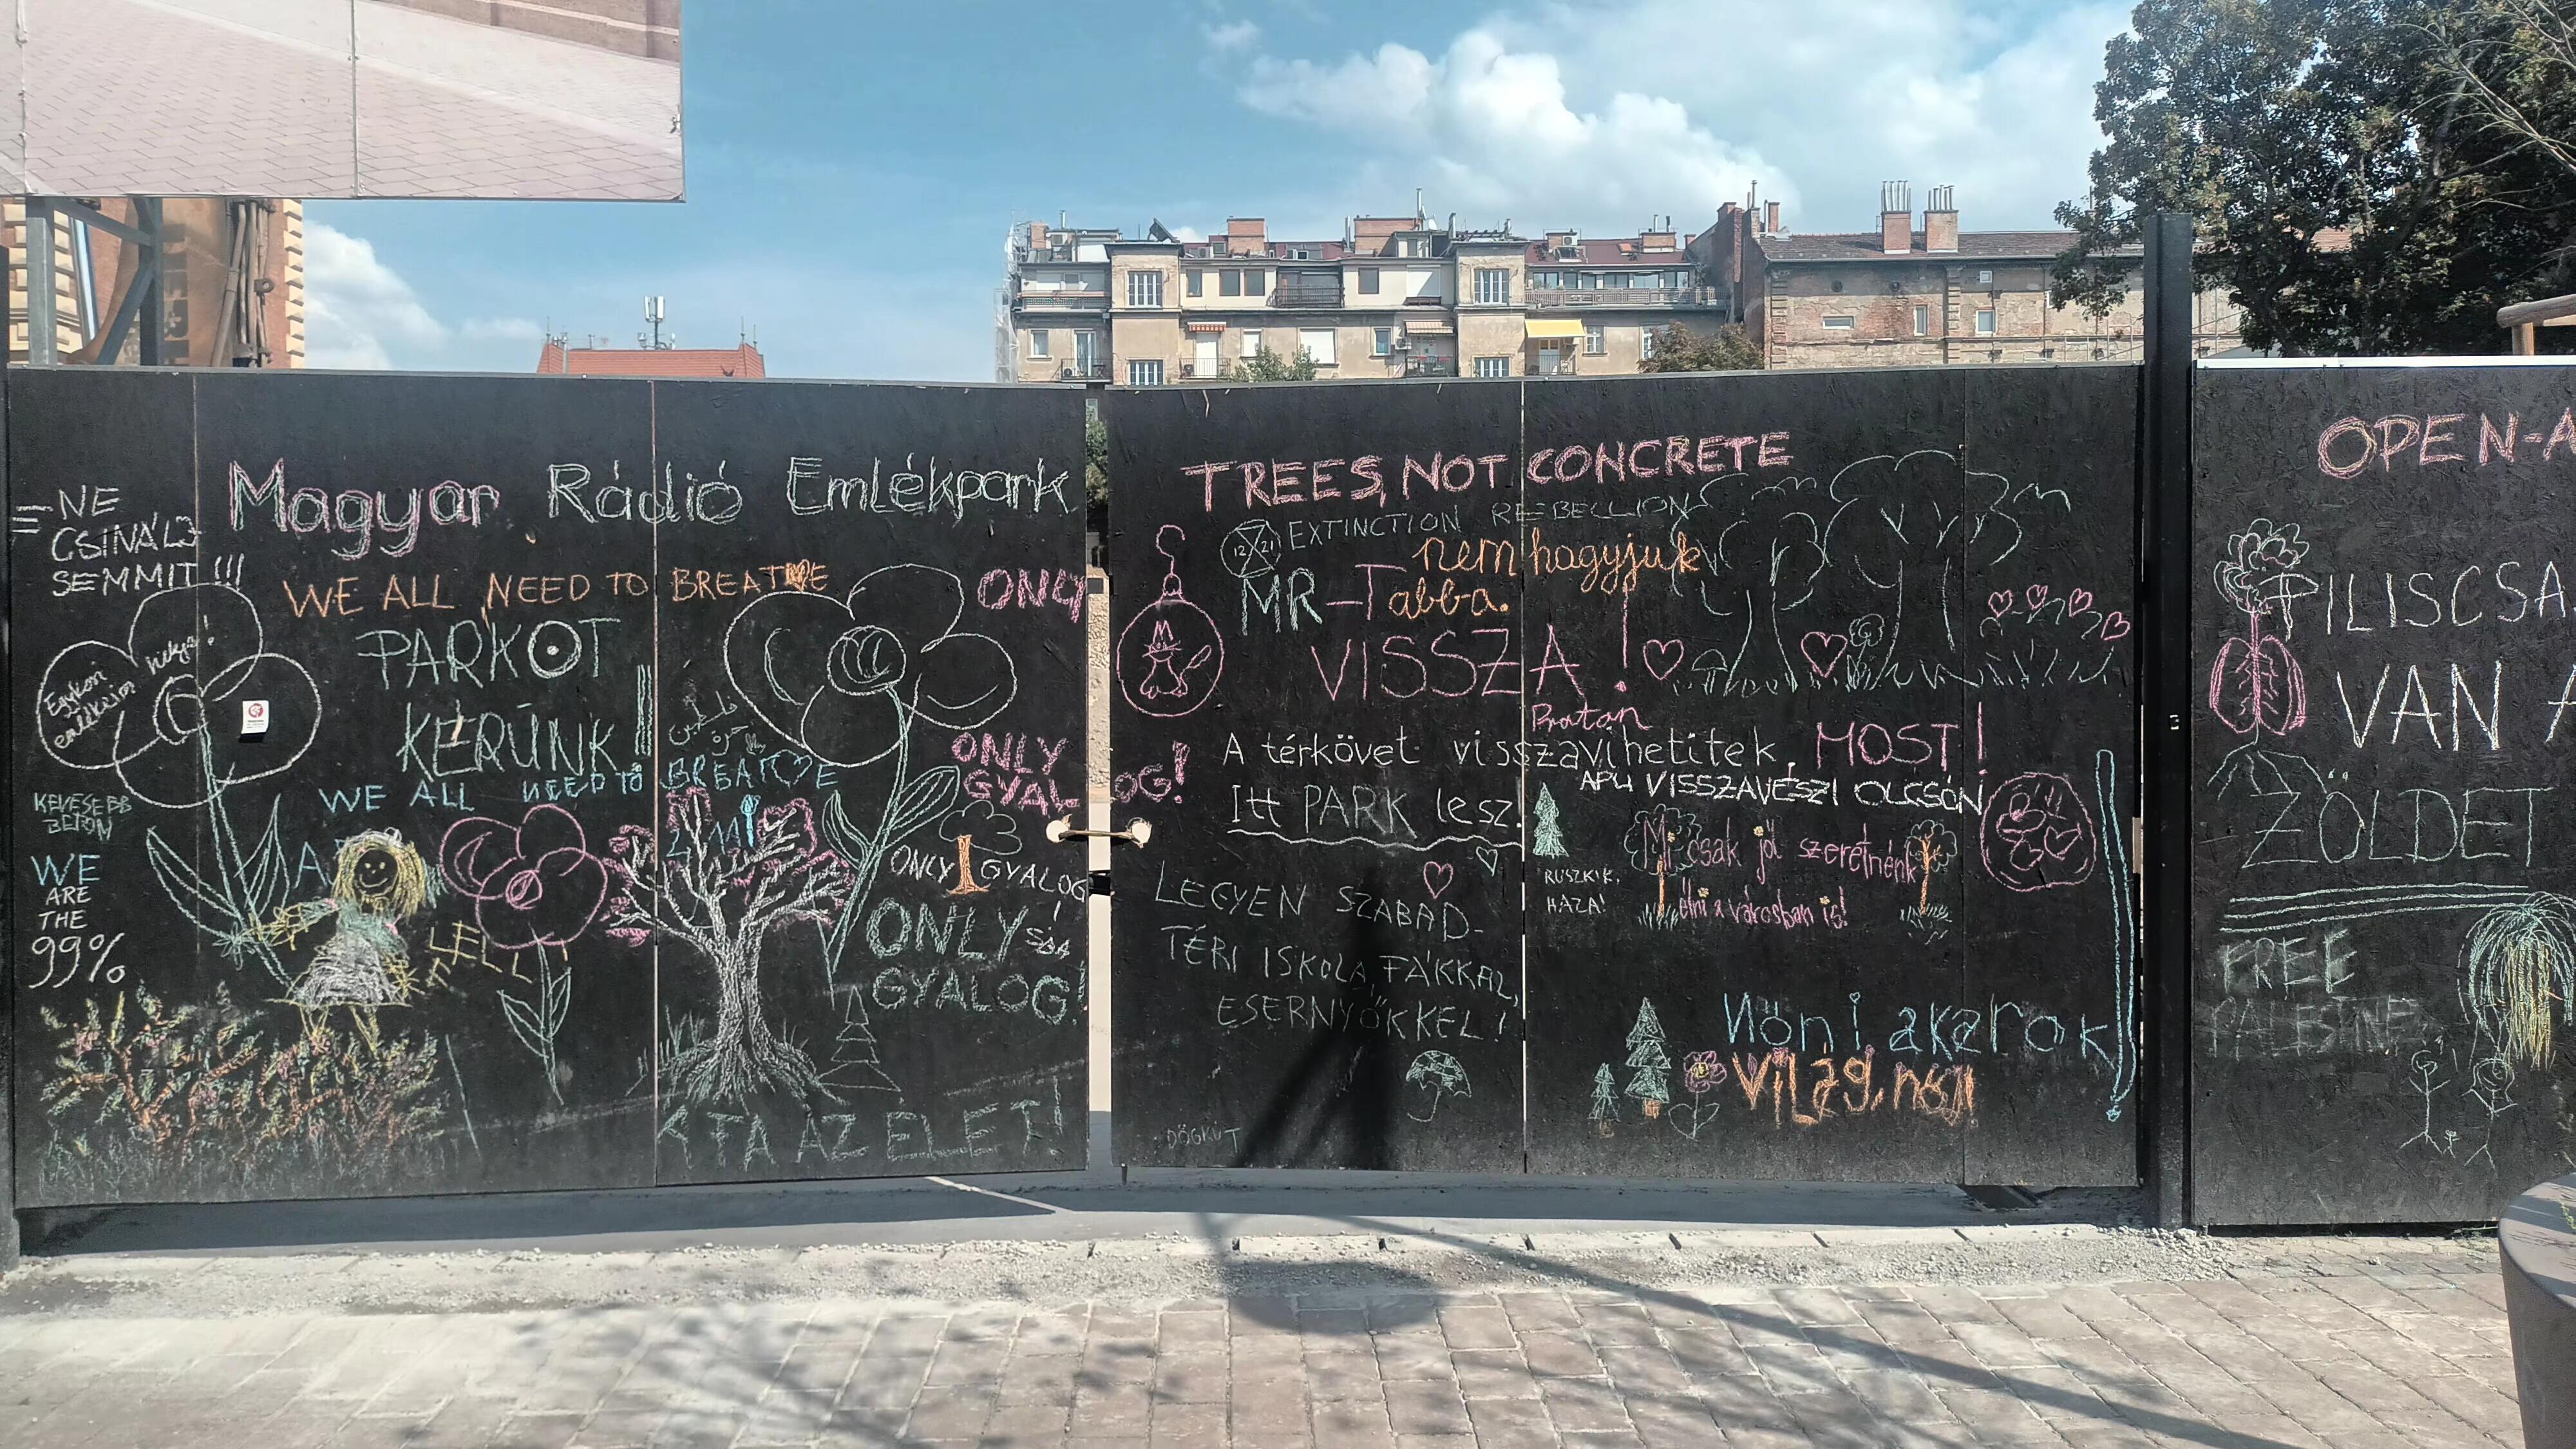 = NE
CSINÁLJ
SEMMIT!!!
Magyar Rádió Emlékpark
WE ALL NEED TO BREATHE
PARKOT
KÉRÜNK!!
WE ALL NEED TO BREATHE
KEVESEBB
BETON
WE
ARE
THE
99%
KELL
ONLY
ONLY
GYALOG!
ONLY 1 GYALOG
ONLY
GYALOG!
A FA AZ ÉLET!
TREES, NOT CONCRETE
EXTINCTION REBELLION
nem hagyjuk
MR-T abba.
VISSZA!
A térkövet visszavihetitek. MOST!
APU VISSZAVESZI OLCSÓN
Itt PARK lesz.
Mi csak jól szeretnénk
élni a városban is!
RUSZKIK,
HAZA!
LEGYEN SZABAD-
TÉRI ISKOLA, FÁKKAL,
ESERNYŐKKEL!
Nőni akarok
Világ, nőj!
DÖGKÚT
OPEN-A
PILISCSA
VAN A
ZÖLDET
FREE
PALESTINE